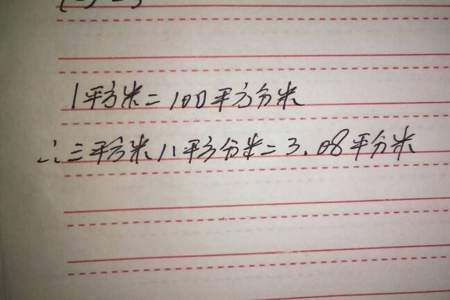 1平方米=100平方分米
∴三平方米八平方分米=3.08平分米